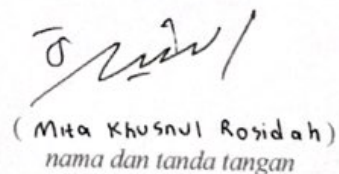 ( Mita Khusnul Rosidah )
nama dan tanda tangan